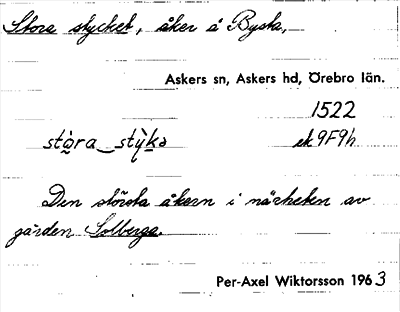 Stora stycket, åker å Bysta,
Askers sn, Askers hd, Örebro län.
1522
stò̱ra‿stỳḵə ek 9F9h
Den största åkern i närheten av
gården Solberga.
Per-Axel Wiktorsson 1963